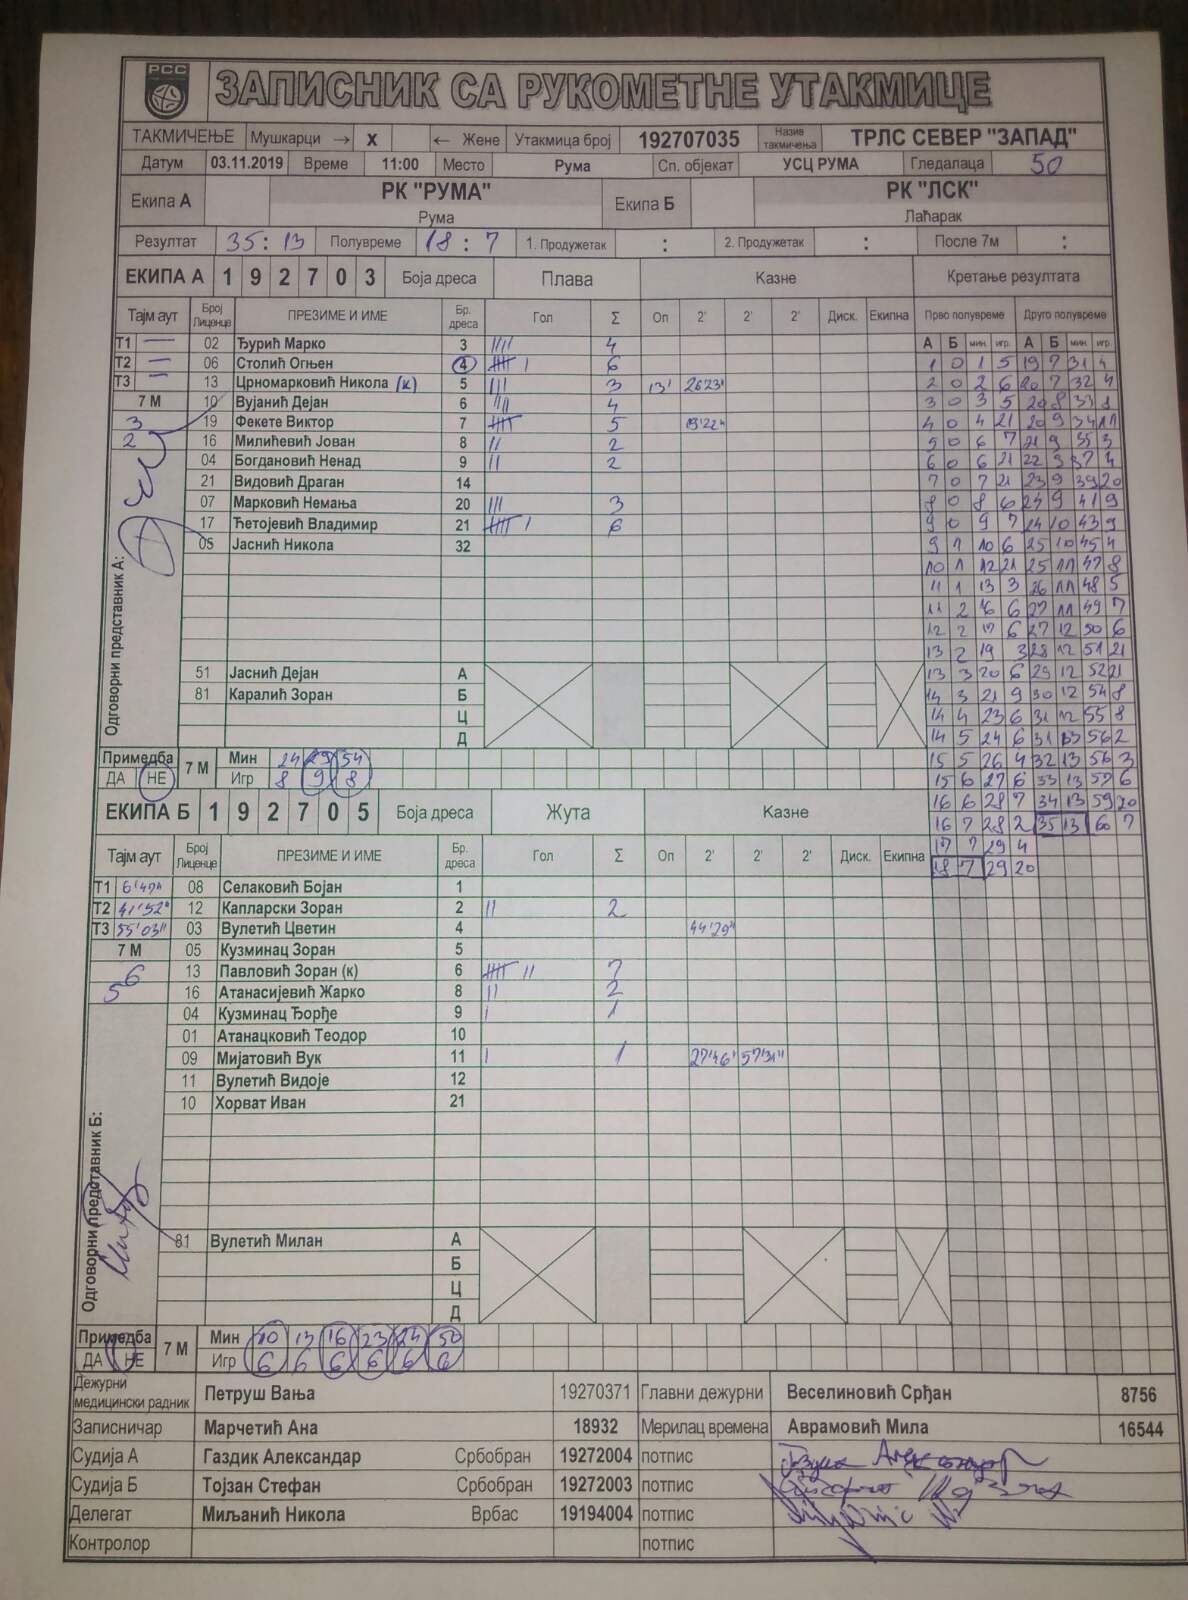 РСС
ЗАПИСНИК СА РУКОМЕТНЕ УТАКМИЦЕ
ТАКМИЧЕЊЕ Мушкарци → X ← Жене Утакмица број 192707035 Назив такмичења ТРЛС СЕВЕР "ЗАПАД"
Датум 03.11.2019 Време 11:00 Место Рума Сп. објекат УСЦ РУМА Гледалаца 50
Екипа А РК "РУМА" Екипа Б РК "ЛСК"
Рума Лаћарак
Резултат 35 : 13 Полувреме 18 : 7 1. Продужетак : 2. Продужетак : После 7м :
ЕКИПА А 1 9 2 7 0 3 Боја дреса Плава Казне Кретање резултата
Тајм аут Број Лиценце ПРЕЗИМЕ И ИМЕ Бр. дреса Гол Σ Оп 2' 2' 2' Диск. Екипна Прво полувреме Друго полувреме
Т1 — 02 Ђурић Марко 3 IIII 4 А Б мин. игр. А Б мин. игр.
Т2 — 06 Столић Огњен 4 IIIII I 6 1 0 1 5 19 7 31 4
Т3 — 13 Црномарковић Никола (к) 5 III 3 13' 26'23" 2 0 2 6 20 7 32 4
7 М 10 Вујанић Дејан 6 IIII 4 3 0 3 5 20 8 33 8
3 19 Фекете Виктор 7 IIIII 5 19'22" 4 0 4 21 20 9 34 11
2 16 Милићевић Јован 8 II 2 5 0 6 7 21 9 35 3
04 Богдановић Ненад 9 II 2 6 0 6 21 22 9 37 4
21 Видовић Драган 14 7 0 7 21 23 9 39 20
07 Марковић Немања 20 III 3 8 0 8 6 24 9 41 9
17 Ћетојевић Владимир 21 IIIII I 6 9 0 9 7 24 10 43 9
05 Јаснић Никола 32 9 1 10 6 25 10 45 4
10 1 12 21 25 11 47 8
11 1 13 3 26 11 48 5
11 2 16 6 27 11 49 7
12 2 17 6 27 12 50 6
13 2 19 3 28 12 51 21
51 Јаснић Дејан А 13 3 20 6 29 12 52 21
81 Каралић Зоран Б 14 3 21 9 30 12 54 8
Ц 14 4 23 6 31 12 55 8
Д 14 5 24 6 31 13 56 2
Одговорни представник А:
Примедба 7 М Мин 24 29 54 15 5 26 4 32 13 56 3
ДА НЕ Игр 8 9 8 15 6 27 6 33 13 57 6
ЕКИПА Б 1 9 2 7 0 5 Боја дреса Жута Казне 16 6 28 7 34 13 59 20
16 7 28 2 35 13 60 7
Тајм аут Број Лиценце ПРЕЗИМЕ И ИМЕ Бр. дреса Гол Σ Оп 2' 2' 2' Диск. Екипна 17 7 29 4
18 7 29 20
Т1 08 Селаковић Бојан 1
Т2 41'52" 12 Капларски Зоран 2 II 2
Т3 55'03" 03 Вулетић Цветин 4 44'29"
7 М 05 Кузминац Зоран 5
6 13 Павловић Зоран (к) 6 IIIII II 7
5 16 Атанасијевић Жарко 8 II 2
04 Кузминац Ђорђе 9 I 1
01 Атанацковић Теодор 10
09 Мијатовић Вук 11 I 1 27'46" 57'31"
11 Вулетић Видоје 12
10 Хорват Иван 21
Одговорни представник Б:
81 Вулетић Милан А
Б
Ц
Д
Примедба 7 М Мин 10 13 16 23 24 50
ДА НЕ Игр 6 6 6 6 6 6
Дежурни медицински радник Петруш Вања 19270371 Главни дежурни Веселиновић Срђан 8756
Записничар Марчетић Ана 18932 Мерилац времена Аврамовић Мила 16544
Судија А Газдик Александар Србобран 19272004 потпис
Судија Б Тојзан Стефан Србобран 19272003 потпис
Делегат Миљанић Никола Врбас 19194004 потпис
Контролор потпис